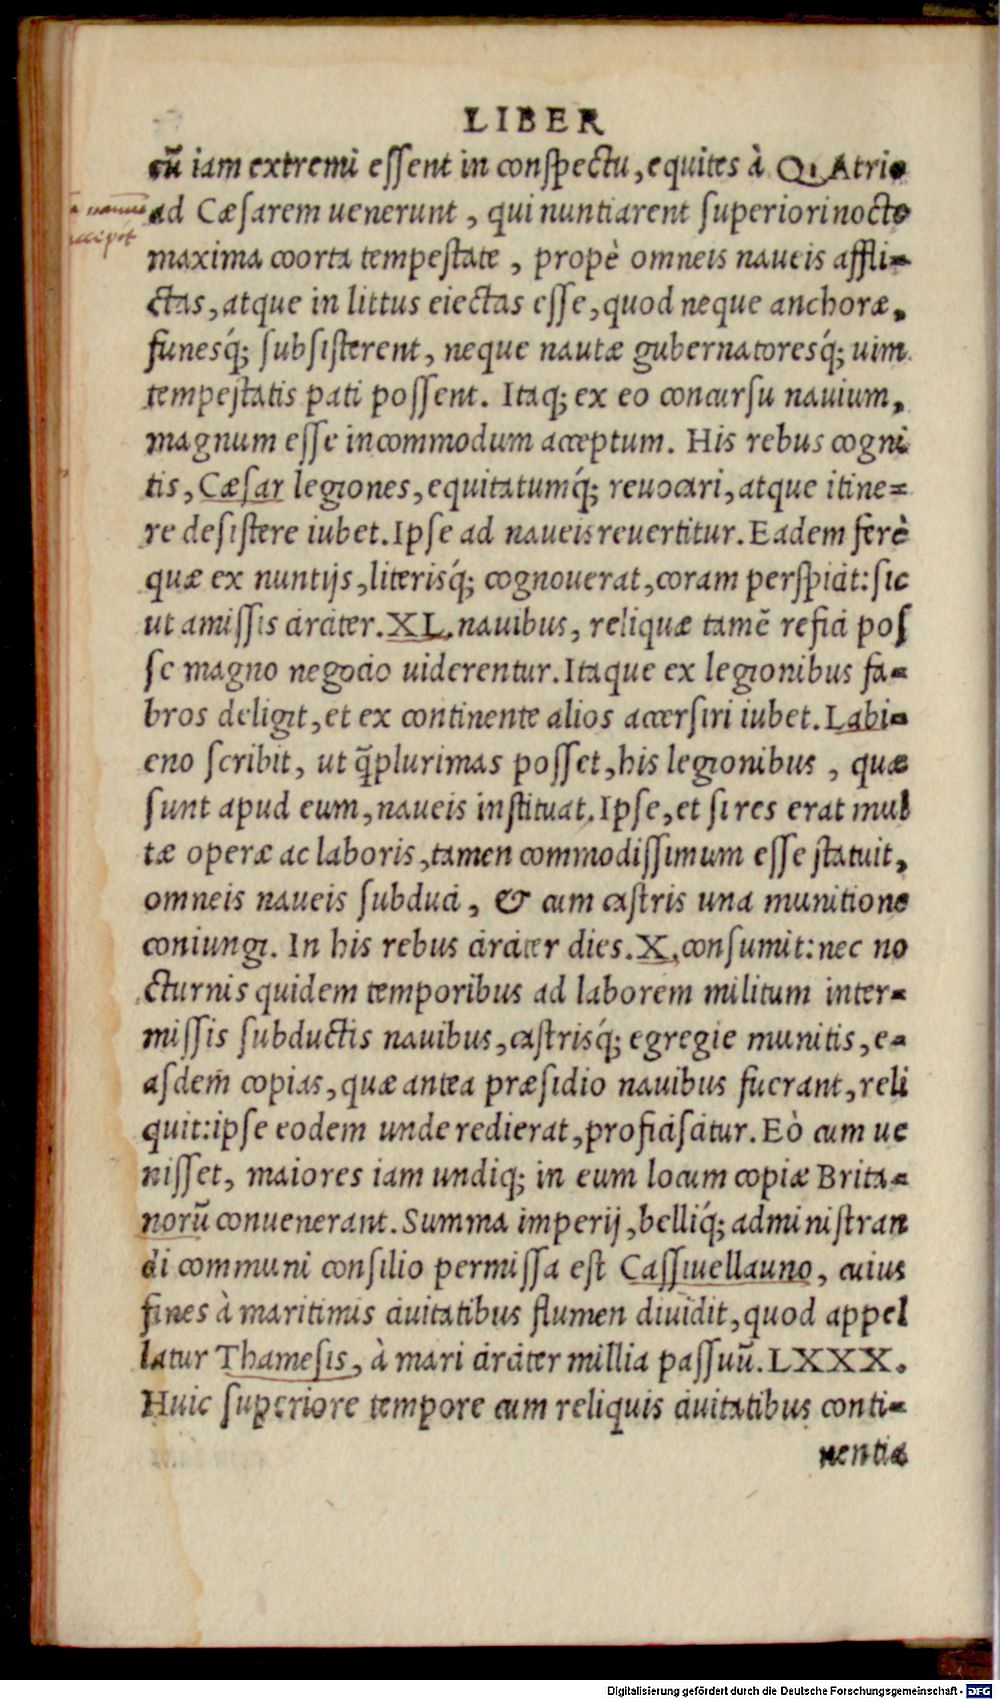 LIBER
cũ iam extremi essent in conspectu, equites à Q. Atrio
ad Cæsarem uenerunt, qui nuntiarent superiori nocte
maxima coorta tempestate, propè omneis naueis affli-
ctas, atque in littus eiectas esse, quod neque anchoræ,
funesq́; subsisterent, neque nautæ gubernatoresq́; uim
tempestatis pati possent. Itaq; ex eo concursu nauium,
magnum esse incommodum acceptum. His rebus cogni
tis, Cæsar legiones, equitatumq́; reuocari, atque itine-
re desistere iubet. Ipse ad naueis reuertitur. Eadem ferè
quæ ex nuntijs, literisq́; cognouerat, coram perspicit: sic
ut amissis circiter. XL. nauibus, reliquæ tamẽ refici pos
se magno negocio uiderentur. Itaque ex legionibus fa-
bros deligit, et ex continente alios accersiri iubet. Labi-
eno scribit, ut q̃plurimas posset, his legionibus, quæ
sunt apud eum, naueis instituat. Ipse, et si res erat mul
tæ operæ ac laboris, tamen commodissimum esse statuit,
omneis naueis subduci, & cum castris una munitione
coniungi. In his rebus circiter dies. X. consumit: nec no
cturnis quidem temporibus ad laborem militum inter-
missis subductis nauibus, castrisq́; egregie munitis, e-
asdem copias, quæ antea præsidio nauibus fuerant, reli
quit: ipse eodem unde redierat, proficiscitur. Eò cum ue
nisset, maiores iam undiq; in eum locum copiæ Brita-
norũ conuenerant. Summa imperij, belliq́; administran
di communi consilio permissa est Cassiuellauno, cuius
fines à maritimis ciuitatibus flumen diuidit, quod appel
latur Thamesis, à mari circiter millia passuũ. LXXX.
Huic superiore tempore cum reliquis ciuitatibus conti-
nentia
Digitalisierung gefördert durch die Deutsche Forschungsgemeinschaft - DFG